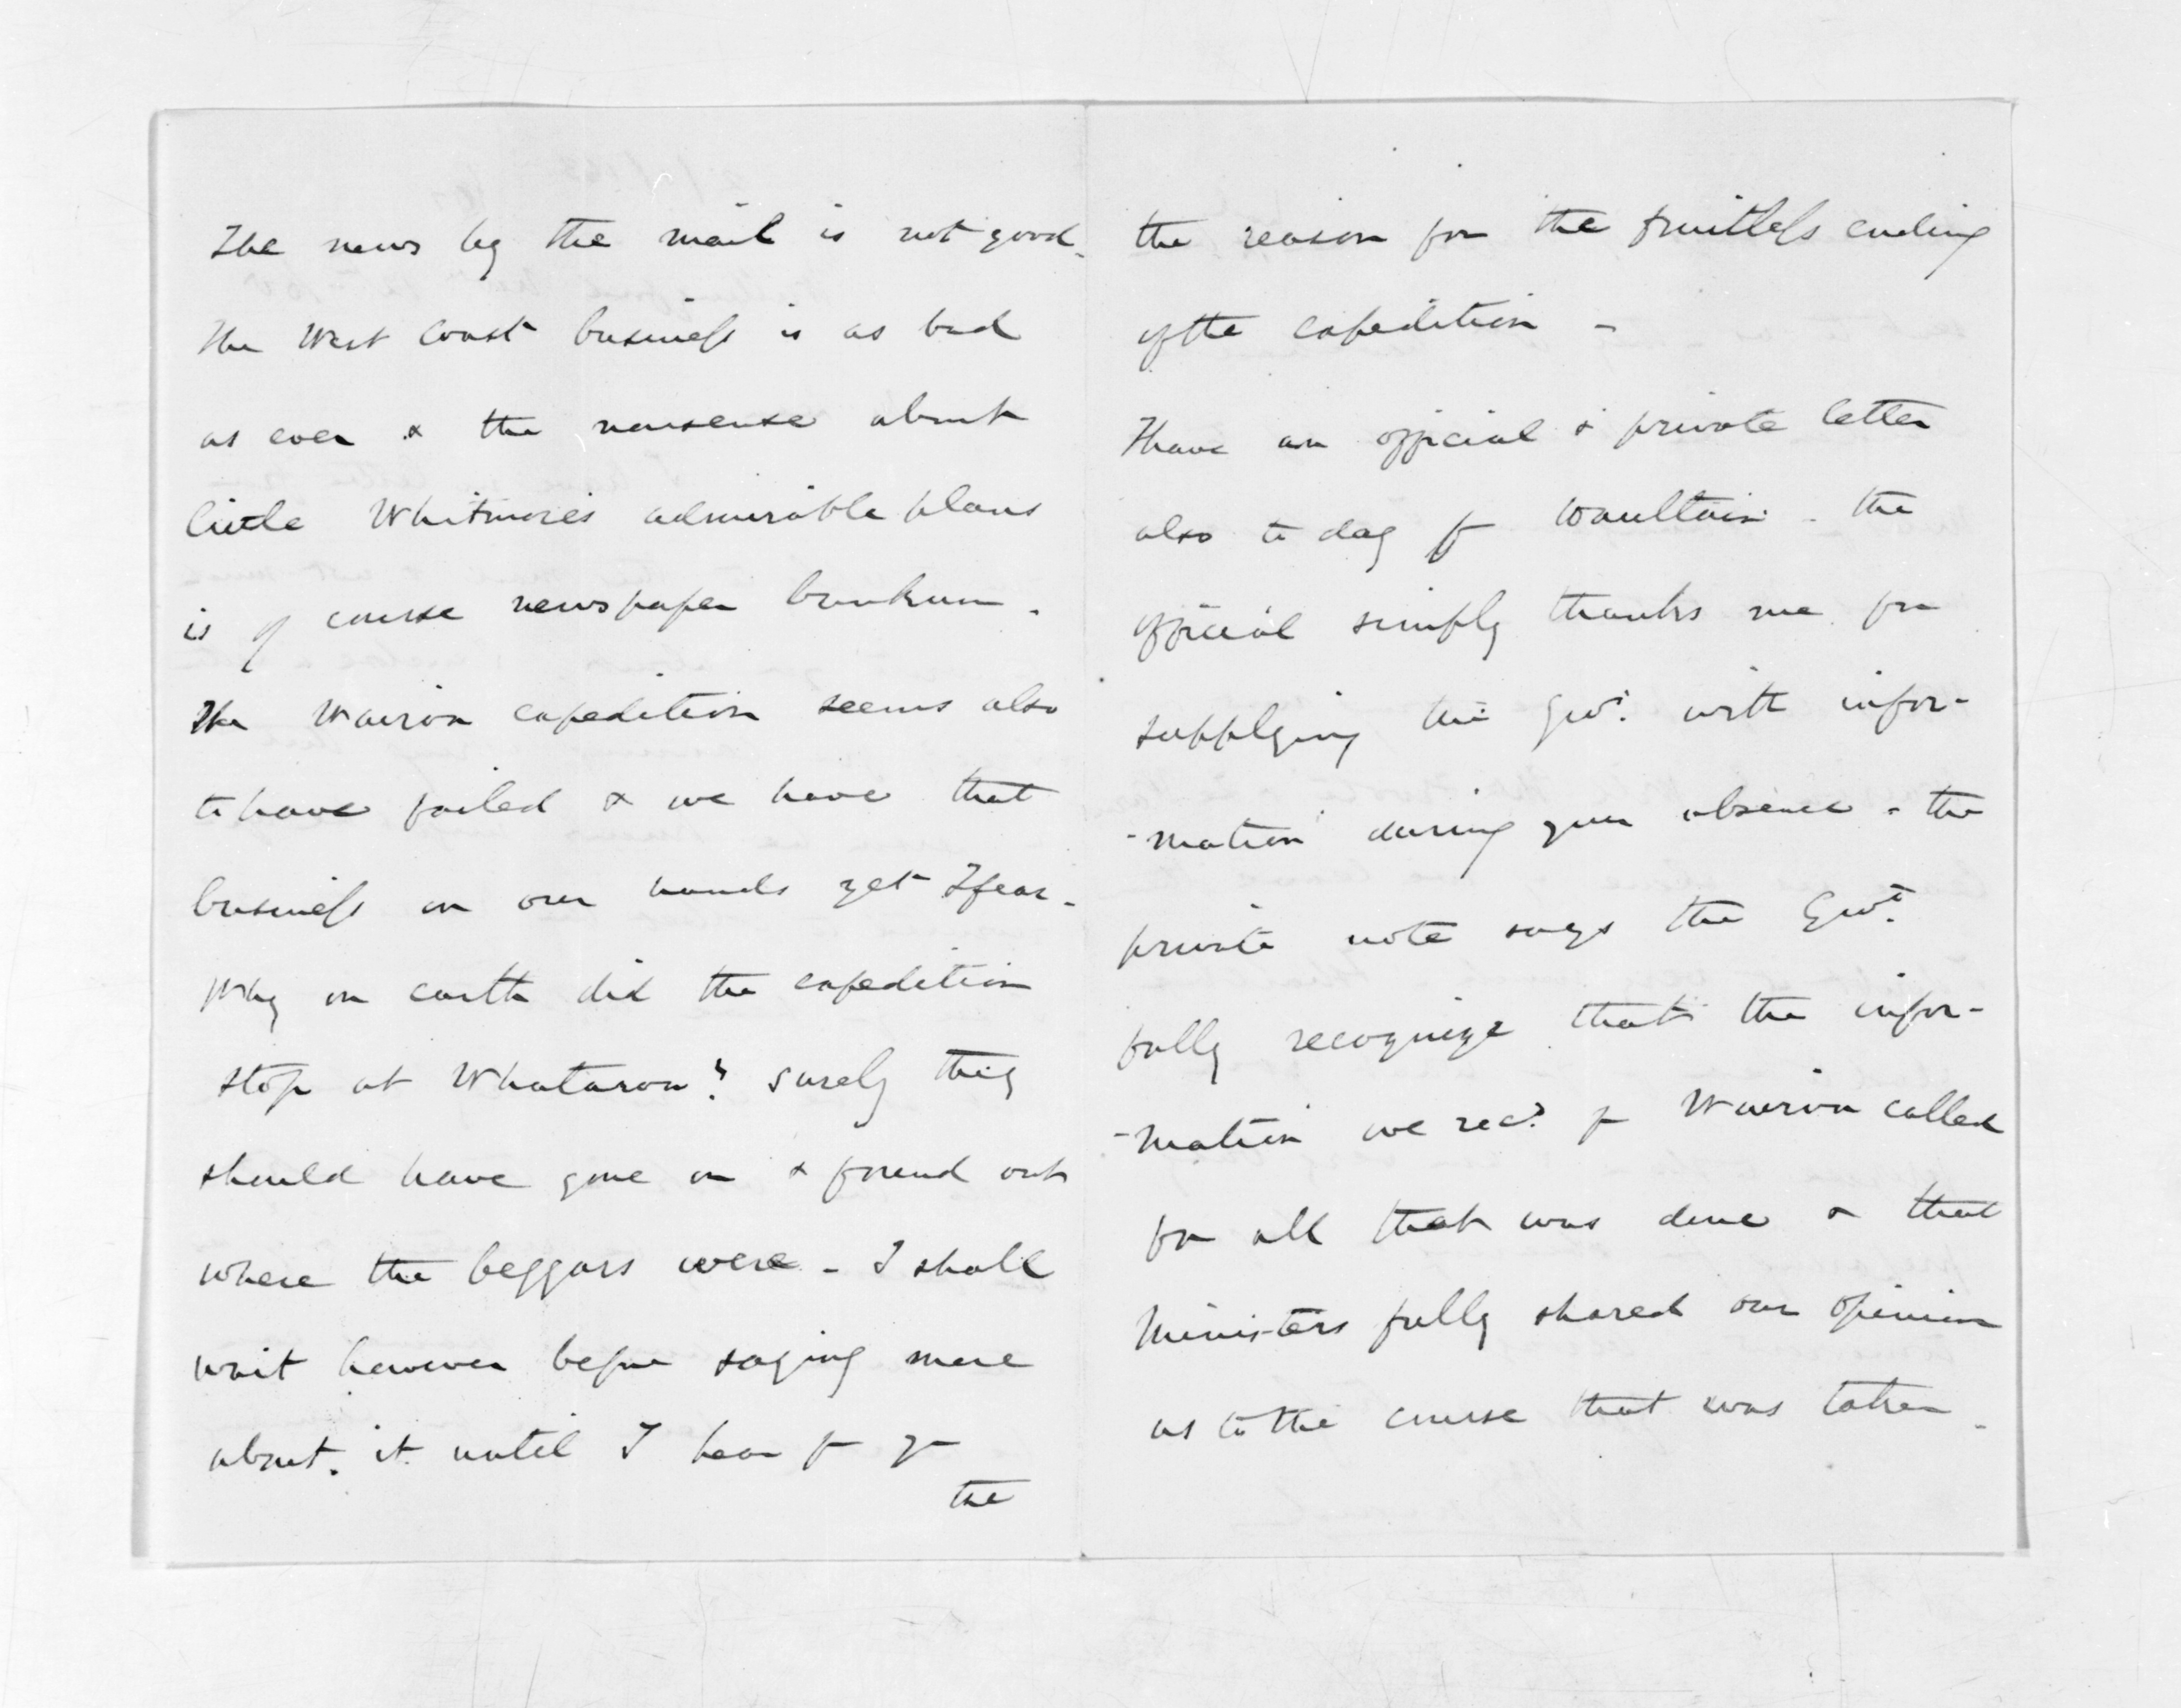 The news by the mail is not good.
The West Coast business is as bad
as ever & the nonsense about
little Whitmore's admirable plans
is of course newspaper bunkum.
The Wairoa expedition seems also
to have failed & we have that
business on our hands yet I fear.
Why on earth did the expedition
stop at Whataroa? surely they
should have gone on & found out
where the beggars were - I shall
wait however before saying more
about it until I hear fr yr
the
the reason for the fruitless ending
of the expedition -
I have an official & private letter
also to day fr - the
official simply thanks me for
supplying the Govt. with infor-
-mation during your absence - the
private note says the Govt.
fully recognize that the infor-
-mation we recd. fr Wairoa called
for all that was done & that
Ministers fully shared our opinion
as to the course that was taken.